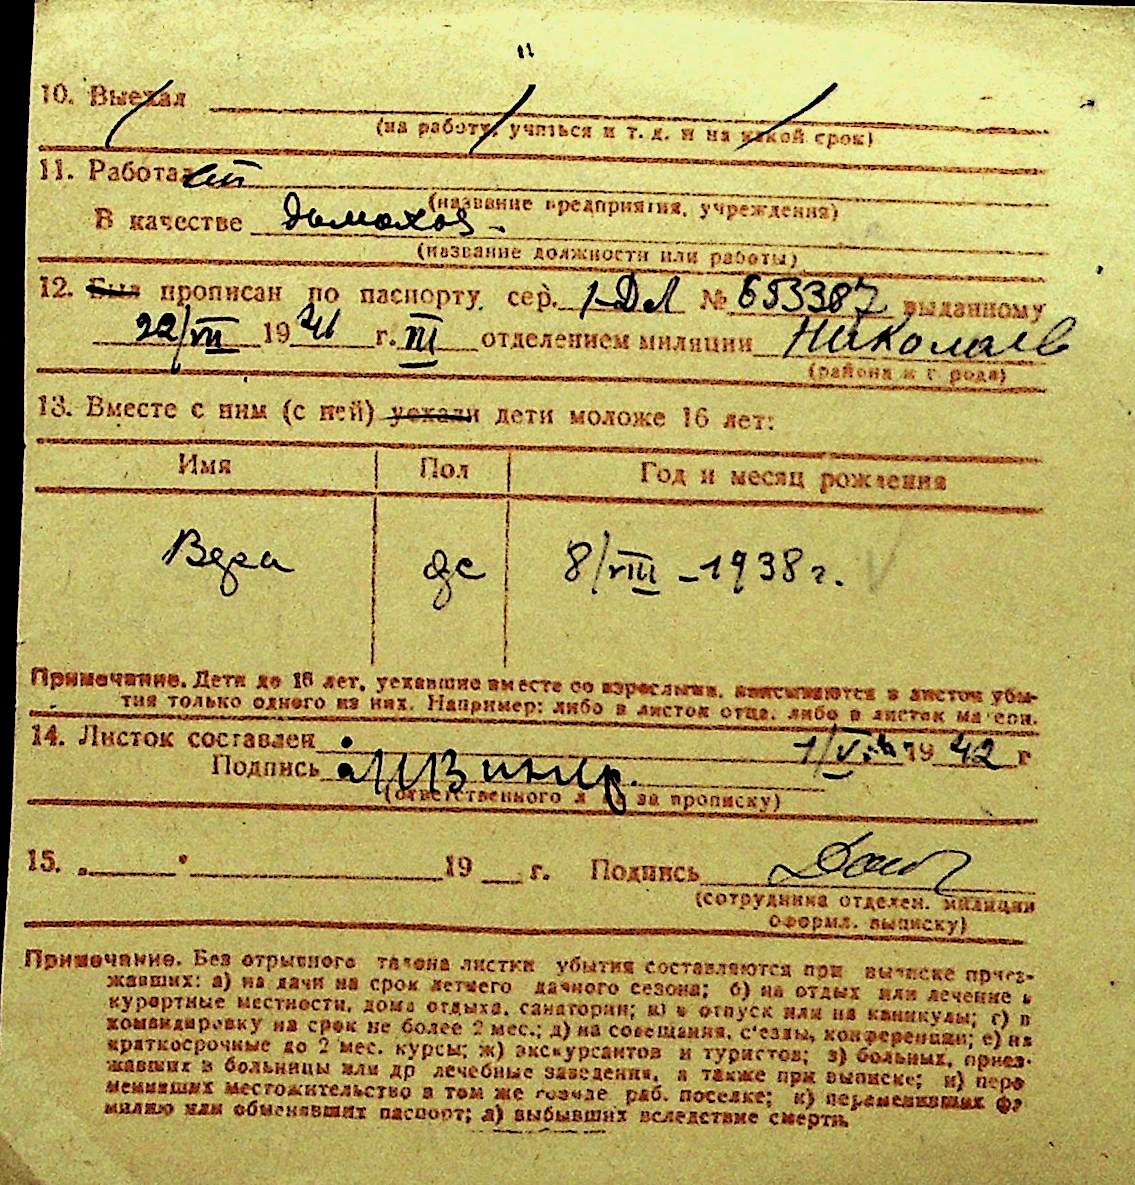 10. Выехал
(на работу, учиться и т. д. и на какой срок)
11. Работа
(название предприятия, учреждения)
В качестве домохоз.
(название должности или работы)
12. Был прописан по паспорту сер. 1-ДЛ № 653387 выданному
22/VII 1941 г. III отделением милиции Николаев
(района и города)
13. Вместе с ним (с ней) уехали дети моложе 16 лет:
Имя Пол Год и месяц рождения
Вера же 8/VIII-1938 г.
Примечание. Дети до 16 лет, уехавшие вместе со взрослыми, вписываются в листок убы-
тия только одного из них. Например: либо в листок отца, либо в листок матери.
14. Листок составлен 1/V 1942 г
Подпись
(ответственного за прописку)
15. 19 г. Подпись
(сотрудника отделен. милиции
оформл. выписку)
Примечание. Без отрывного талона листки убытия составляются при выписке приез-
жавших: а) на дачи на срок летнего дачного сезона; б) на отдых или лечение в
курортные местности, дома отдыха, санатории; в) в отпуск или на каникулы; г) в
командировку на срок не более 2 мес.; д) на совещания, с'езды, конференции; е) на
краткосрочные до 2 мес. курсы; ж) экскурсантов и туристов; з) больных, приез-
жавших в больницы или др лечебные заведения, а также при выписке; и) пере
менивших местожительство в том же городе раб. поселке; к) переменивших фа
милию или обменявших паспорт; л) выбывших вследствие смерти.